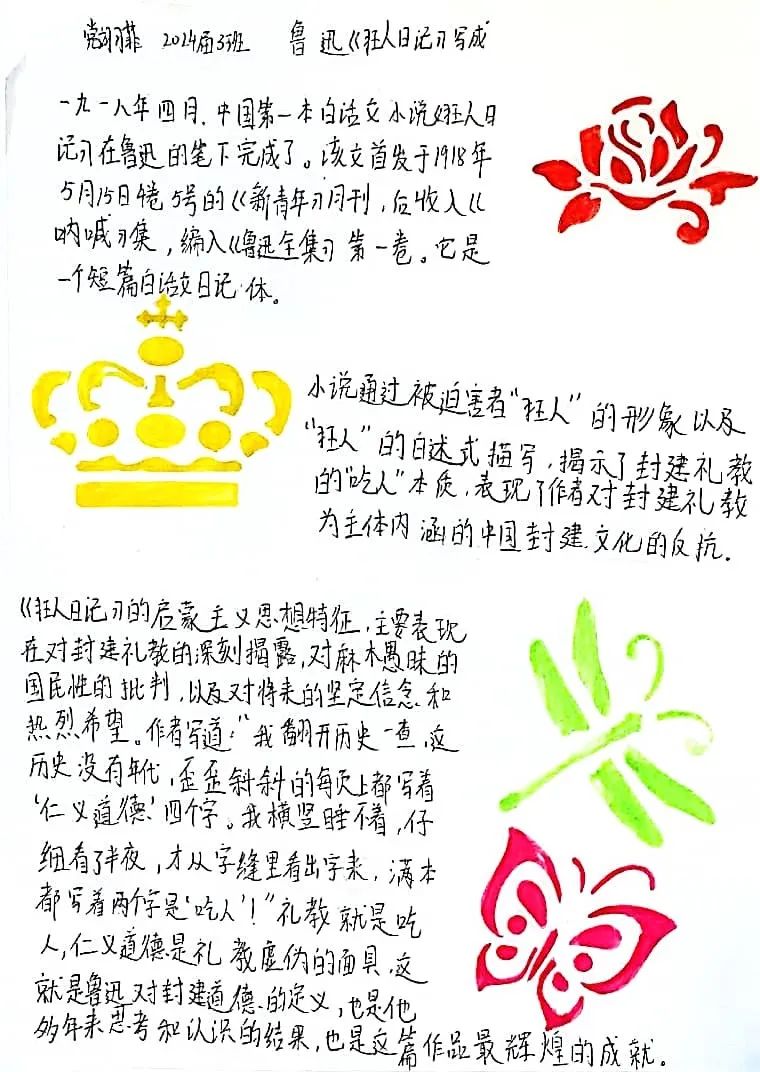 党翊菲 2024届3班 鲁迅《狂人日记》写成
一九一八年四月,中国第一本白话文小说《狂人日
记》在鲁迅的笔下完成了。该文首发于1918年
5月15日4卷5号的《新青年》月刊,后收入《
呐喊》集,编入《鲁迅全集》第一卷。它是
一个短篇白话文日记体。
小说通过被迫害者“狂人”的形象以及
“狂人”的自述式描写,揭示了封建礼教
的“吃人”本质,表现了作者对封建礼教
为主体内涵的中国封建文化的反抗.
《狂人日记》的启蒙主义思想特征,主要表现
在对封建礼教的深刻揭露,对麻木愚昧的
国民性的批判,以及对将来的坚定信念和
热烈希望。作者写道:“我翻开历史一查,这
历史没有年代,歪歪斜斜的每页上都写着
‘仁义道德’四个字。我横竖睡不着,仔
细看了半夜,才从字缝里看出字来,满本
都写着两个字是‘吃人’!”礼教就是吃
人,仁义道德是礼教虚伪的面具,这
就是鲁迅对封建道德的定义,也是他
多年来思考和认识的结果,也是这篇作品最辉煌的成就。